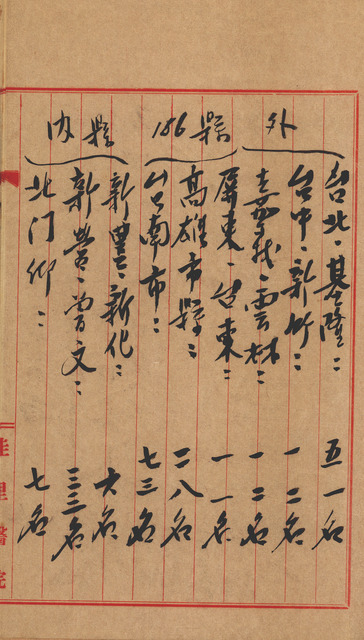 外縣 186
台北、基隆： 五一名
台中、新竹： 一二名
嘉義、雲林： 一二名
屏東、台東： 一一名
高雄市縣： 二八名
台南市： 七三名
縣內
新豐、新化： 六名
新營、曾文： 三三名
北门郡： 七名
佳里醫院